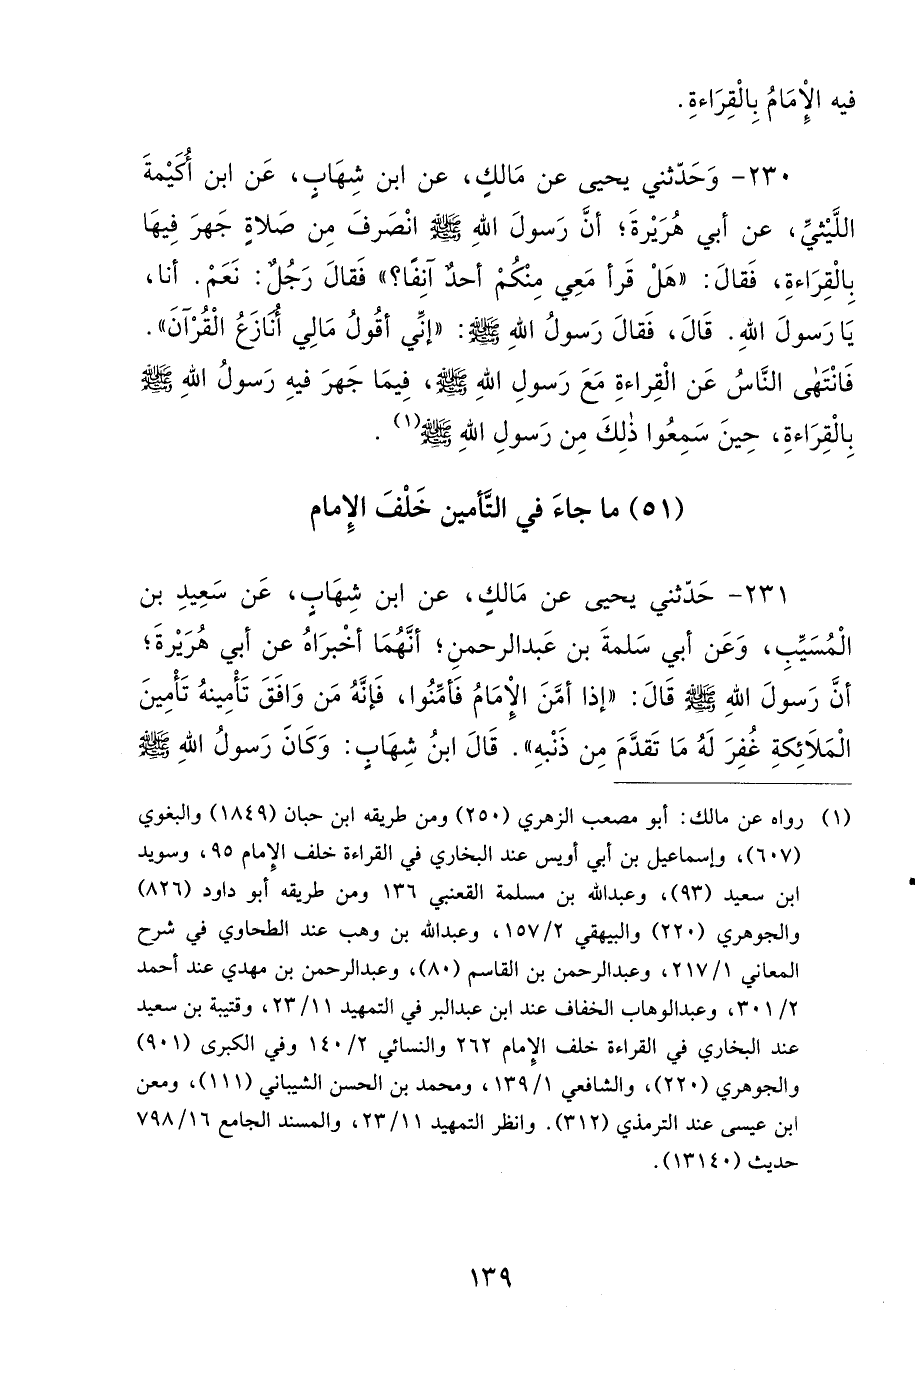 فيه الْإِمَامُ بِالْقِرَاءةِ.
٢٣٠- وَحَدّثني يحيى عن مَالكٍ، عن ابن شِهَابٍ، عَن ابن أُكَيْمةَ
اللَّيْثيِّ، عن أبي هُرَيْرةَ؛ أنَّ رَسولَ اللهِ ﷺ انْصَرفَ مِن صَلاةٍ جَهرَ فِيهَا
بِالْقِرَاءةِ، فَقالَ: «هَلْ قَرأ مَعِي مِنْكُمْ أحدٌ آنِفًا؟» فَقالَ رَجُلٌ: نَعَمْ. أنا،
يَا رَسولَ اللهِ. قَالَ، فَقالَ رَسولُ اللهِ ﷺ: «إنِّي أقُولُ مَالِي أُنَازَعُ الْقُرْآنَ».
فَانْتَهٰى النَّاسُ عَن الْقِراءةِ مَعَ رَسولِ اللهِ ﷺ، فِيمَا جَهرَ فيهِ رَسولُ اللهِ ﷺ
بِالْقِرَاءةِ، حِينَ سَمِعُوا ذٰلِكَ مِن رَسولِ اللهِ ﷺ(١) .
(٥١) ما جاءَ في التَّأمين خَلْفَ الإِمام
٢٣١- حَدّثني يحيى عن مَالكٍ، عن ابن شِهَابٍ، عَن سَعِيدِ بن
الْمُسَيِّبِ، وَعَن أبي سَلمةَ بن عَبدالرحمنِ؛ أنَّهُمَا أخْبرَاهُ عن أبي هُرَيْرةَ؛
أنَّ رَسولَ اللهِ ﷺ قَالَ: «إذا أمَّنَ الْإِمَامُ فَأمِّنُوا، فَإنَّهُ مَن وَافَقَ تَأْمِينهُ تَأْمِينَ
الْمَلَائِكةِ غُفِرَ لَهُ مَا تَقدَّمَ مِن ذَنْبهِ». قَالَ ابنُ شِهَابٍ: وَكَانَ رَسولُ اللهِ ﷺ
(١) رواه عن مالك: أبو مصعب الزهري (٢٥٠) ومن طريقه ابن حبان (١٨٤٩) والبغوي
(٦٠٧)، وإسماعيل بن أبي أويس عند البخاري في القراءة خلف الإمام ٩٥، وسويد
ابن سعيد (٩٣)، وعبدالله بن مسلمة القعنبي ١٣٦ ومن طريقه أبو داود (٨٢٦)
والجوهري (٢٢٠) والبيهقي ٢/ ١٥٧، وعبدالله بن وهب عند الطحاوي في شرح
المعاني ١/ ٢١٧، وعبدالرحمن بن القاسم (٨٠)، وعبدالرحمن بن مهدي عند أحمد
٢/ ٣٠١، وعبدالوهاب الخفاف عند ابن عبدالبر في التمهيد ١١/ ٢٣، وقتيبة بن سعيد
عند البخاري في القراءة خلف الإمام ٢٦٢ والنسائي ٢/ ١٤٠ وفي الكبرى (٩٠١)
والجوهري (٢٢٠)، والشافعي ١/ ١٣٩، ومحمد بن الحسن الشيباني (١١١)، ومعن
ابن عيسى عند الترمذي (٣١٢). وانظر التمهيد ١١/ ٢٣، والمسند الجامع ١٦/ ٧٩٨
حديث (١٣١٤٠).
١٣٩